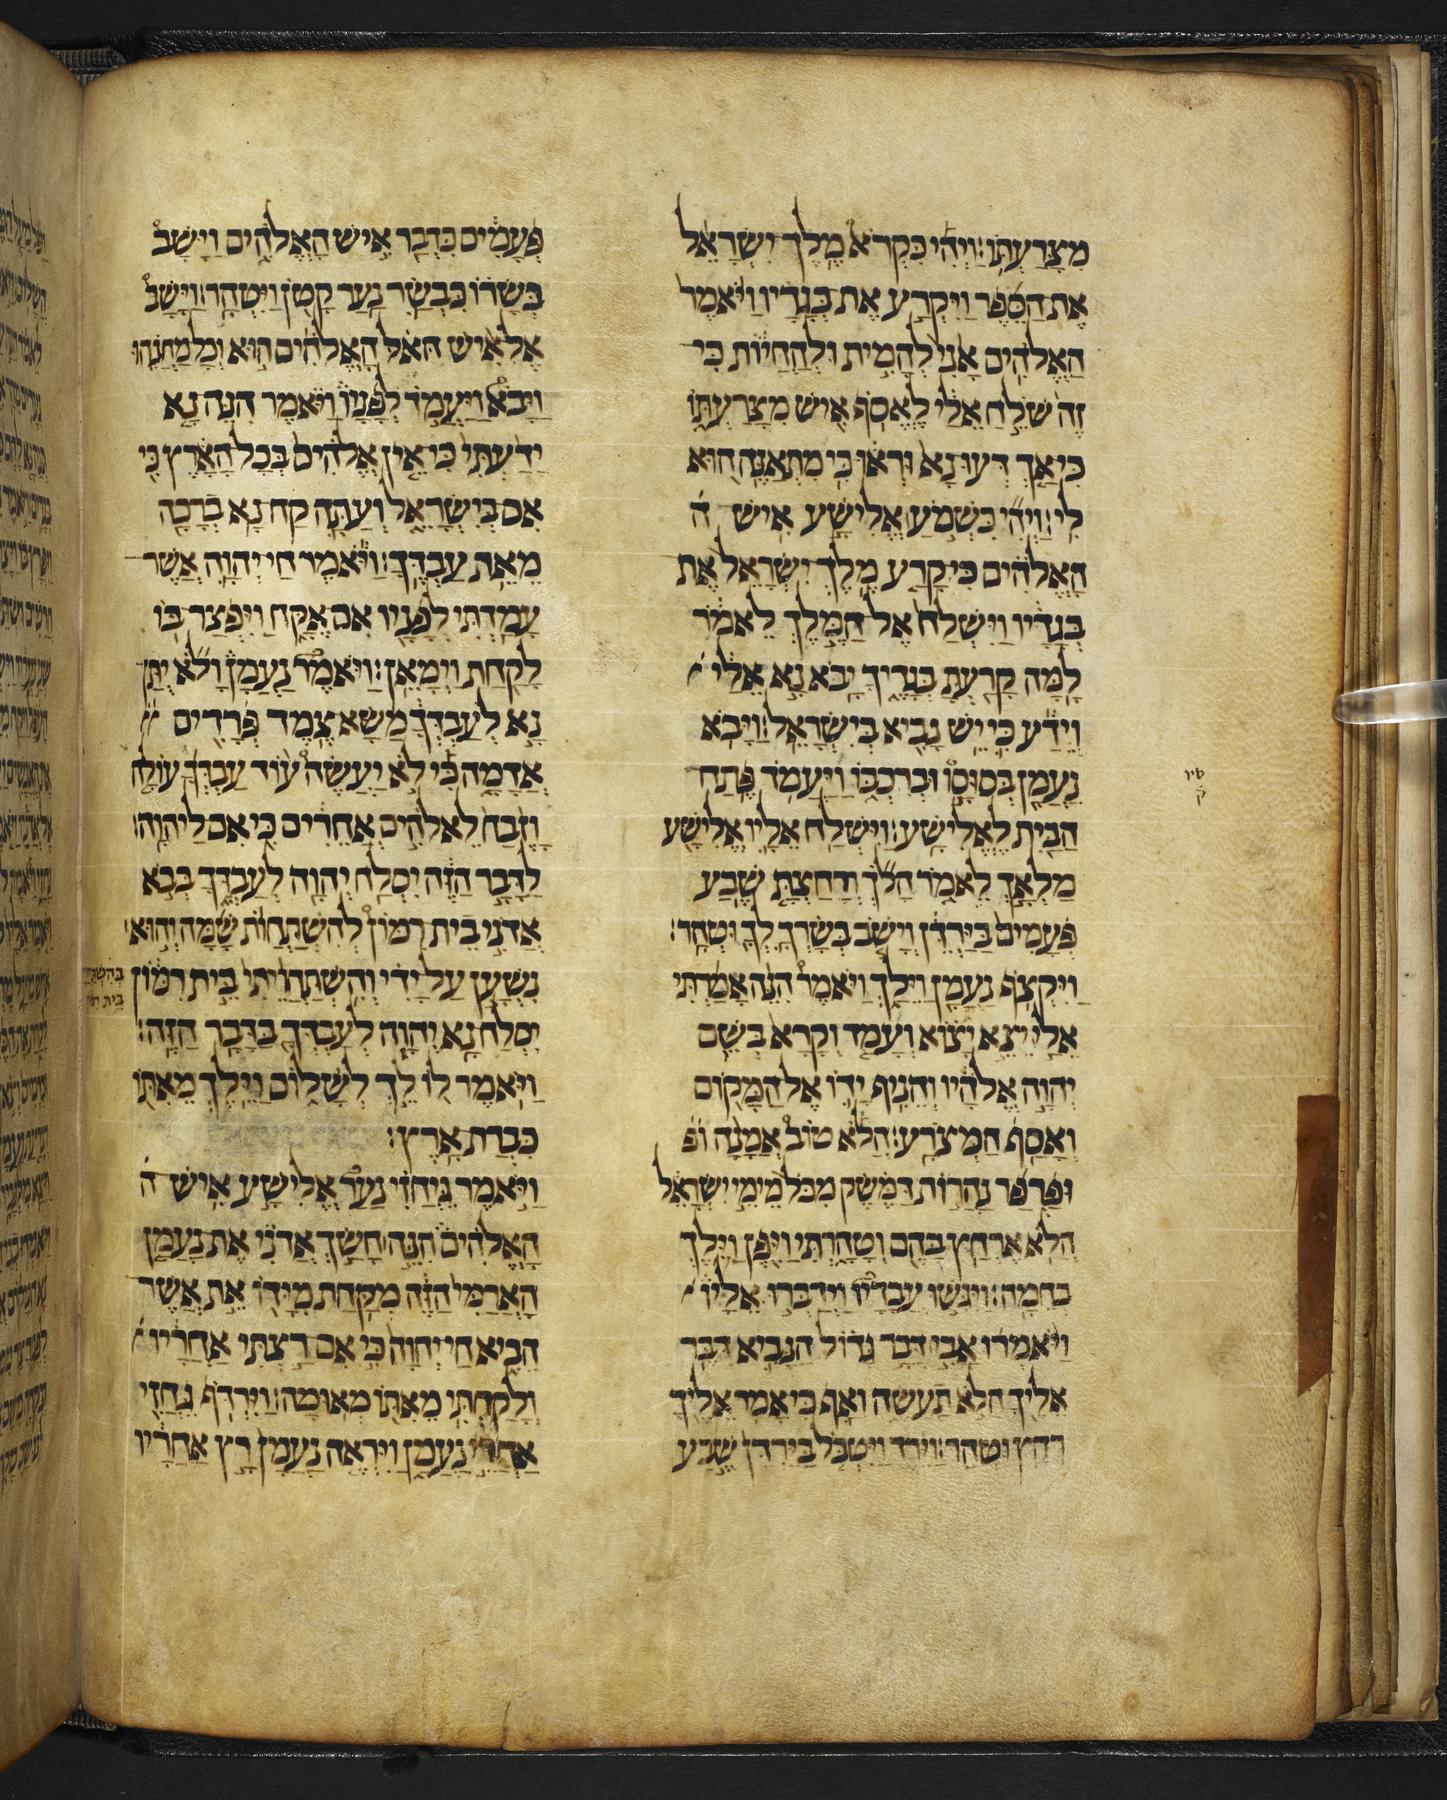 מִצָּרַעְתּוֹ׃ וַיְהִי כִּקְרֹא מֶלֶךְ יִשְׂרָאֵל
אֶת הַסֵּפֶר וַיִּקְרַע אֶת בְּגָדָיו וַיֹּאמֶר
הַאֱלֹהִים אָנִי לְהָמִית וּלְהַחֲיוֹת כִּי
זֶה שֹׁלֵחַ אֵלַי לֶאֱסֹף אִישׁ מִצָּרַעְתּוֹ
כִּי אַךְ דְּעוּ נָא וּרְאוּ כִּי מִתְאַנֶּה הוּא
לִי׃ וַיְהִי כִּשְׁמֹעַ אֱלִישָׁע אִישׁ ה
הָאֱלֹהִים כִּי קָרַע מֶלֶךְ יִשְׂרָאֵל אֶת
בְּגָדָיו וַיִּשְׁלַח אֶל הַמֶּלֶךְ לֵאמֹר
לָמָּה קָרַעְתָּ בְּגָדֶיךָ יָבֹא נָא אֵלַי
וְיֵדַע כִּי יֵשׁ נָבִיא בְּיִשְׂרָאֵל׃ וַיָּבֹא
נַעֲמָן בְּסוּסָו וּבְרִכְבּוֹ וַיַּעֲמֹד פֶּתַח
הַבַּיִת לֶאֱלִישָׁע׃ וַיִּשְׁלַח אֵלָיו אֱלִישָׁע
מַלְאָךְ לֵאמֹר הָלֹךְ וְרָחַצְתָּ שֶׁבַע
פְּעָמִים בַּיַּרְדֵּן וְיָשֹׁב בְּשָׂרְךָ לְךָ וּטְהָר׃
וַיִּקְצֹף נַעֲמָן וַיֵּלַךְ וַיֹּאמֶר הִנֵּה אָמַרְתִּי
אֵלַי יֵצֵא יָצוֹא וְעָמַד וְקָרָא בְּשֵׁם
יְהוָה אֱלֹהָיו וְהֵנִיף יָדוֹ אֶל הַמָּקוֹם
וְאָסַף הַמְּצֹרָע׃ הֲלֹא טוֹב אֲמָנָה וּפ
וּפַרְפַּר נַהֲרוֹת דַּמֶּשֶׂק מִכֹּל מֵימֵי יִשְׂרָאֵל
הֲלֹא אֶרְחַץ בָּהֶם וְטָהָרְתִּי וַיִּפֶן וַיֵּלֶךְ
בְּחֵמָה׃ וַיִּגְּשׁוּ עֲבָדָיו וַיְדַבְּרוּ אֵלָיו
וַיֹּאמְרוּ אָבִי דָּבָר גָּדוֹל הַנָּבִיא דִּבֶּר
אֵלֶיךָ הֲלֹא תַעֲשֶׂה וְאַף כִּי אָמַר אֵלֶיךָ
רְחַץ וּטְהָר׃ וַיֵּרֶד וַיִּטְבֹּל בַּיַּרְדֵּן שֶׁבַע
סיו
ק
פְּעָמִים כִּדְבַר אִישׁ הָאֱלֹהִים וַיָּשָׁב
בְּשָׂרוֹ כִּבְשַׂר נַעַר קָטֹן וַיִּטְהָר׃ וַיָּשָׁב
אֶל אִישׁ הָאֱלֹהִים הוּא וְכָל מַחֲנֵהוּ
וַיָּבֹא וַיַּעֲמֹד לְפָנָיו וַיֹּאמֶר הִנֵּה נָא
יָדַעְתִּי כִּי אֵין אֱלֹהִים בְּכָל הָאָרֶץ כִּי
אִם בְּיִשְׂרָאֵל וְעַתָּה קַח נָא בְרָכָה
מֵאֵת עַבְדֶּךָ׃ וַיֹּאמֶר חַי יְהוָה אֲשֶׁר
עָמַדְתִּי לְפָנָיו אִם אֶקָּח וַיִּפְצַר בּוֹ
לָקַחַת וַיְמָאֵן׃ וַיֹּאמֶר נַעֲמָן וָלֹא יֻתַּן
נָא לְעַבְדְּךָ מַשָּׂא צֶמֶד פְּרָדִים
אֲדָמָה כִּי לֹא יַעֲשֶׂה עוֹד עַבְדְּךָ עוֹלָה
וָזֶבַח לֵאלֹהִים אֲחֵרִים כִּי אִם לַיהוָה׃
לַדָּבָר הַזֶּה יִסְלַח יְהוָה לְעַבְדֶּךָ בְּבֹא
אֲדֹנִי בֵית רִמּוֹן לְהִשְׁתַּחֲוֹת שָׁמָּה וְהוּא
נִשְׁעָן עַל יָדִי וְהִשְׁתַּחֲוֵיתִי בֵּית רִמּוֹן
יִסְלַח נָא יְהוָה לְעַבְדְּךָ בַּדָּבָר הַזֶּה׃
וַיֹּאמֶר לוֹ לֵךְ לְשָׁלוֹם וַיֵּלֶךְ מֵאִתּוֹ
כִּבְרַת אָרֶץ׃
וַיֹּאמֶר גֵּיחֲזִי נַעַר אֱלִישָׁע אִישׁ ה
הָאֱלֹהִים הִנֵּה חָשַׂךְ אֲדֹנִי אֶת נַעֲמָן
הָאֲרַמִּי הַזֶּה מִקַּחַת מִיָּדוֹ אֵת אֲשֶׁר
הֵבִיא חַי יְהוָה כִּי אִם רַצְתִּי אַחֲרָיו
וְלָקַחְתִּי מֵאִתּוֹ מְאוּמָה׃ וַיִּרְדֹּף גֵּחֲזִי
אַחֲרֵי נַעֲמָן וַיִּרְאֶה נַעֲמָן רָץ אַחֲרָיו